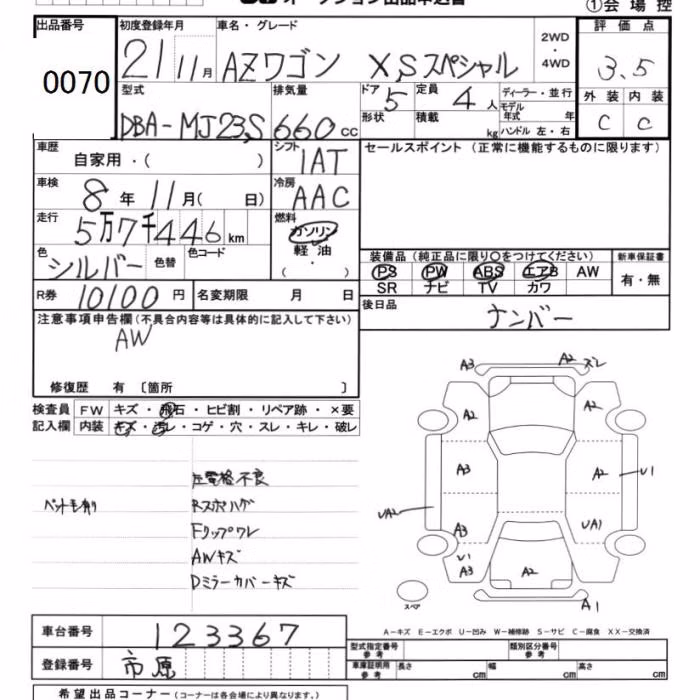 オークション出品申込書
①会場控
出品番号 初度登録年月 車名・グレード 2WD・4WD 評価点
0070 21 11月 AZワゴン XSスペシャル 3.5
型式 排気量 ドア 5 定員 4人 ディーラー・並行 外装 内装
DBA-MJ23S 660cc 形状 積載 kg モデル年式 年 C C
ハンドル 左・右
車歴 自家用・( ) シフト 1AT セールスポイント(正常に機能するものに限ります)
車検 8年 11月( 日) 冷房 AAC
走行 5万7千446km 燃料 ガソリン 軽油 ( ・ )
色 シルバー 色替 色コード 装備品(純正品に限り○をつけてください) 新車保証書
PS PW ABS エアB AW 有・無
SR ナビ TV カワ
R券 10100円 名変期限 月 日 後日品 ナンバー
注意事項申告欄(不具合内容等は具体的に記入して下さい)
AW
修復歴 有 〔箇所 〕
検査員記入欄 FW キズ・飛石・ヒビ割・リペア跡・×要
内装 キズ・汚レ・コゲ・穴・スレ・キレ・破レ
左電格不良
ペット毛有り Rスポハゲ
Fリップワレ
AWキズ
Dミラーカバーキズ
A3 A2 ズレ
A2 A2
A3 A2 U1
UA2 A3 UA1
U1
A3 A2
スペア A1
A-キズ E-エクボ U-凹み W-補修跡 S-サビ C-腐食 XX-交換済
車台番号 123367
登録番号 市原
型式指定番号 参考 類別区分番号 参考
車庫証明用 参考 長さ cm 幅 cm 高さ cm
希望出品コーナー(コーナーは各会場により異なります。)